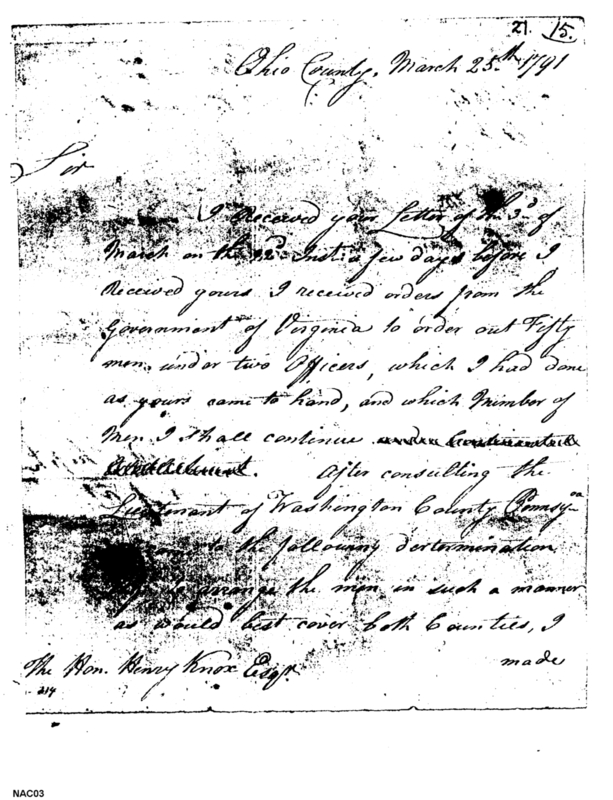 21. 15.
Ohio County, March 25th 1791
Sir
I Received your Letter of the 3d of
March on the 22d Inst: a few days before I
Received yours I received orders from the
Government of Virginia to order out Fifty
men, under two Officers, which I had done
as yours came to hand, and which Number of
Men I shall continue
After consulting the
Lieutenant of Washington County Pennsya
to the following dertermination
arrange the men in such a manner
as would best cover both Counties, I
made
The Hon. Henry Knox Esqr.
214
NAC03